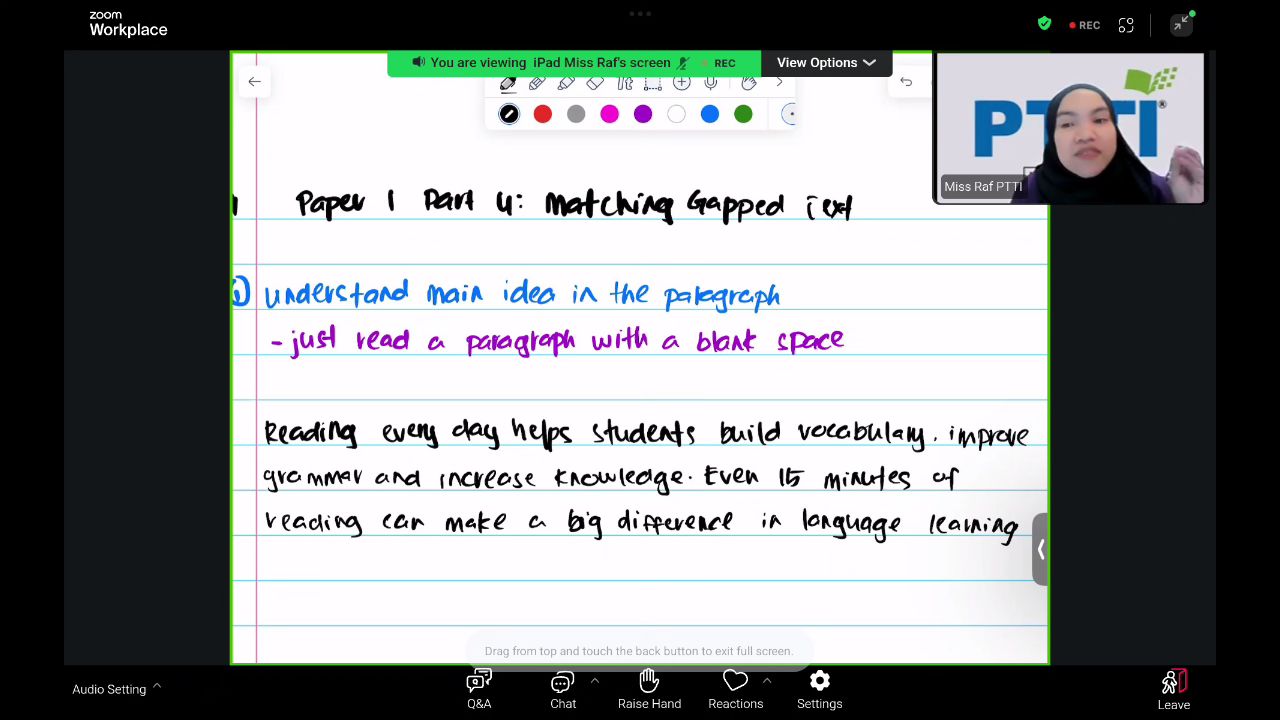 zoom
Workplace
REC
You are viewing iPad Miss Raf's screen
REC
View Options
PTTI®
Miss Raf PTTI
Paper 1 Part 4: Matching Gapped Text
1) understand main idea in the paragraph
- just read a paragraph with a blank space
Reading every day helps students build vocabulary. improve
grammar and increase knowledge. Even 15 minutes of
reading can make a big difference in language learning
Drag from top and touch the back button to exit full screen.
Audio Setting
Q&A
Chat
Raise Hand
Reactions
Settings
Leave